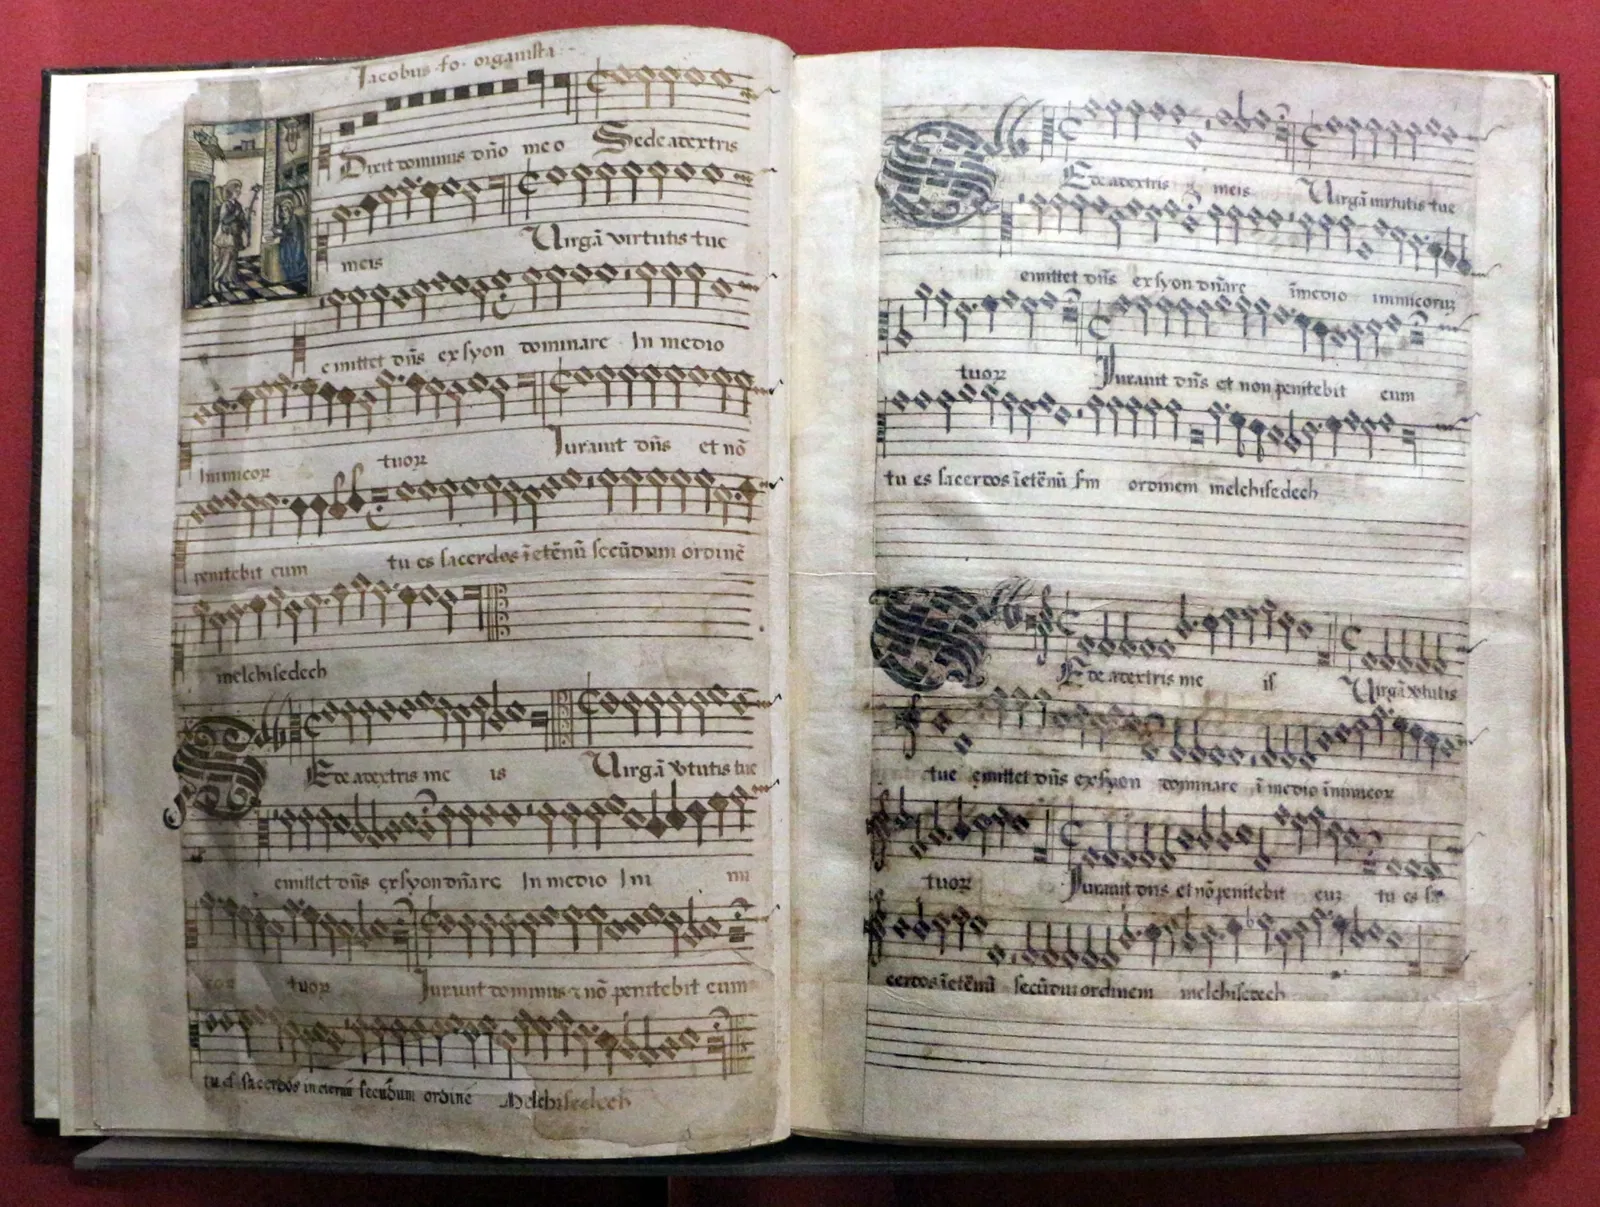 Jacobus · fo · organista
Dixit dominus dño meo Sede adextris
meis Uirgã virtutis tue
emittet dñs exsyon dominare In medio
Inimicoꝝ tuoꝝ Jurauit dñs et nõ
penitebit eum tu es sacerdos ĩetẽnũ secũdum ordinẽ
melchisedech
Ede adextris me is Uirgã v̄tutis tue
emittet dñs exsyon dñare In medio Ini mi
coꝝ tuoꝝ Jurauit dominus ⁊ nõ penitebit eum
tu es sacerdos in eternũ secũdum ordinẽ Melchisedech
Ede adextris meis Uirgã uirtutis tue
emittet dñs exsyon dñare ĩmedio inimicoruꝫ
tuoꝝ Jurauit dñs et non penitebit eum
tu es sacerdos ĩetẽnũ sm ordinem melchisedech
Ede adextris me is Uirgã v̄tutis
tue emittet dñs exsyon dominare ĩ medio ĩnimicoꝝ
tuoꝝ Jurauit dñs et nõ penitebit euꝫ tu es sa
cerdos ĩetẽnũ secũdũ ordinem melchisedech